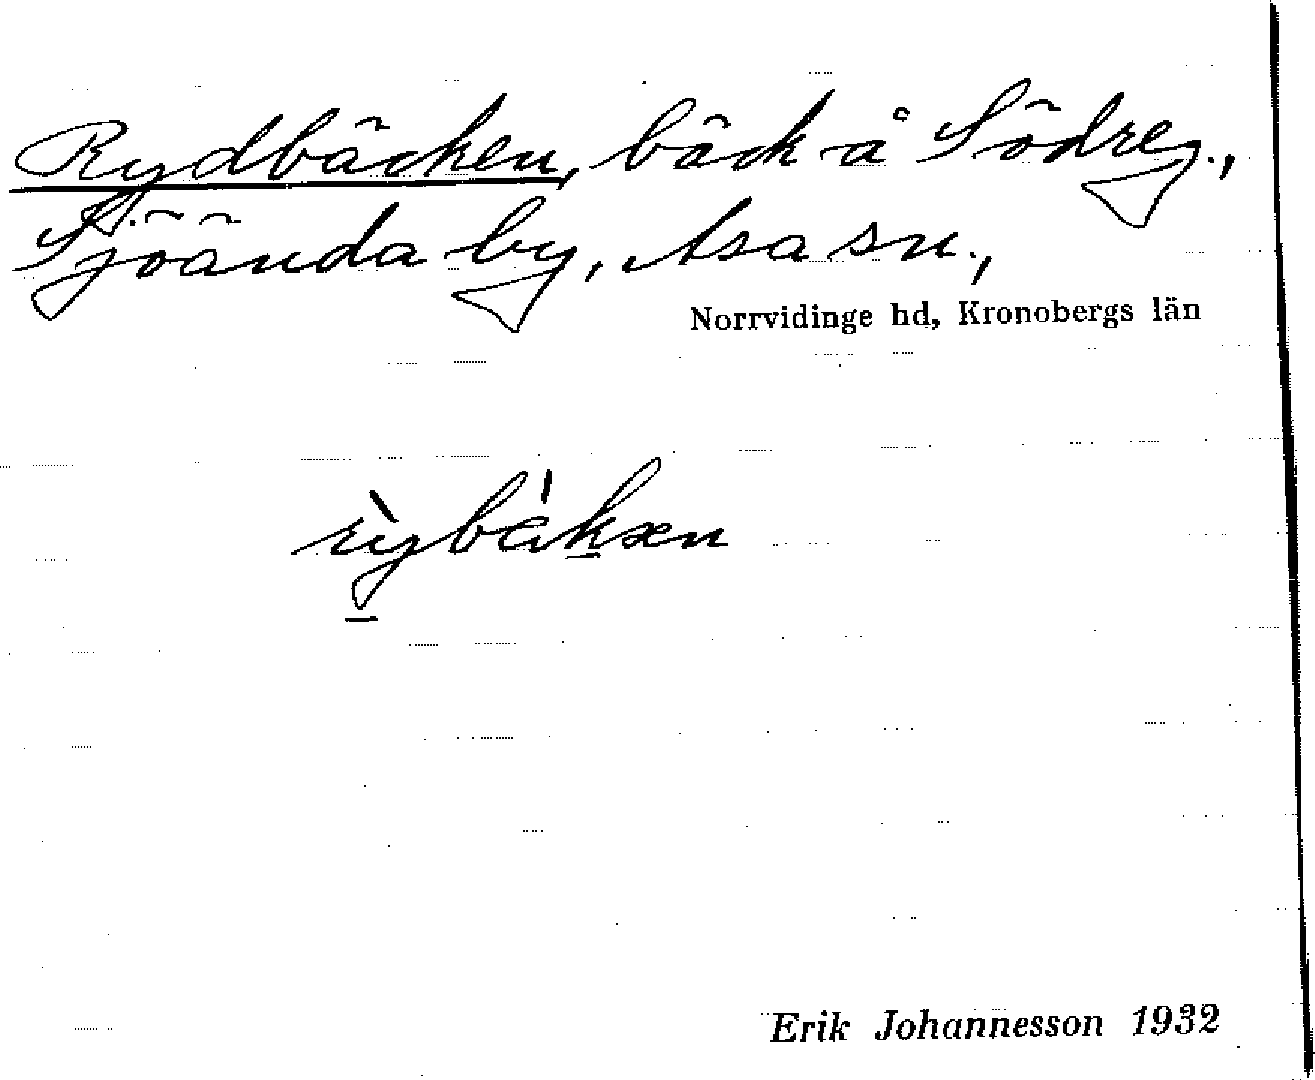 Rydbäcken, bäck å Södreg.,
Sjöända by, Asa sn.,
Norrvidinge hd, Kronobergs län
rỳbákæn
Erik Johannesson 1932